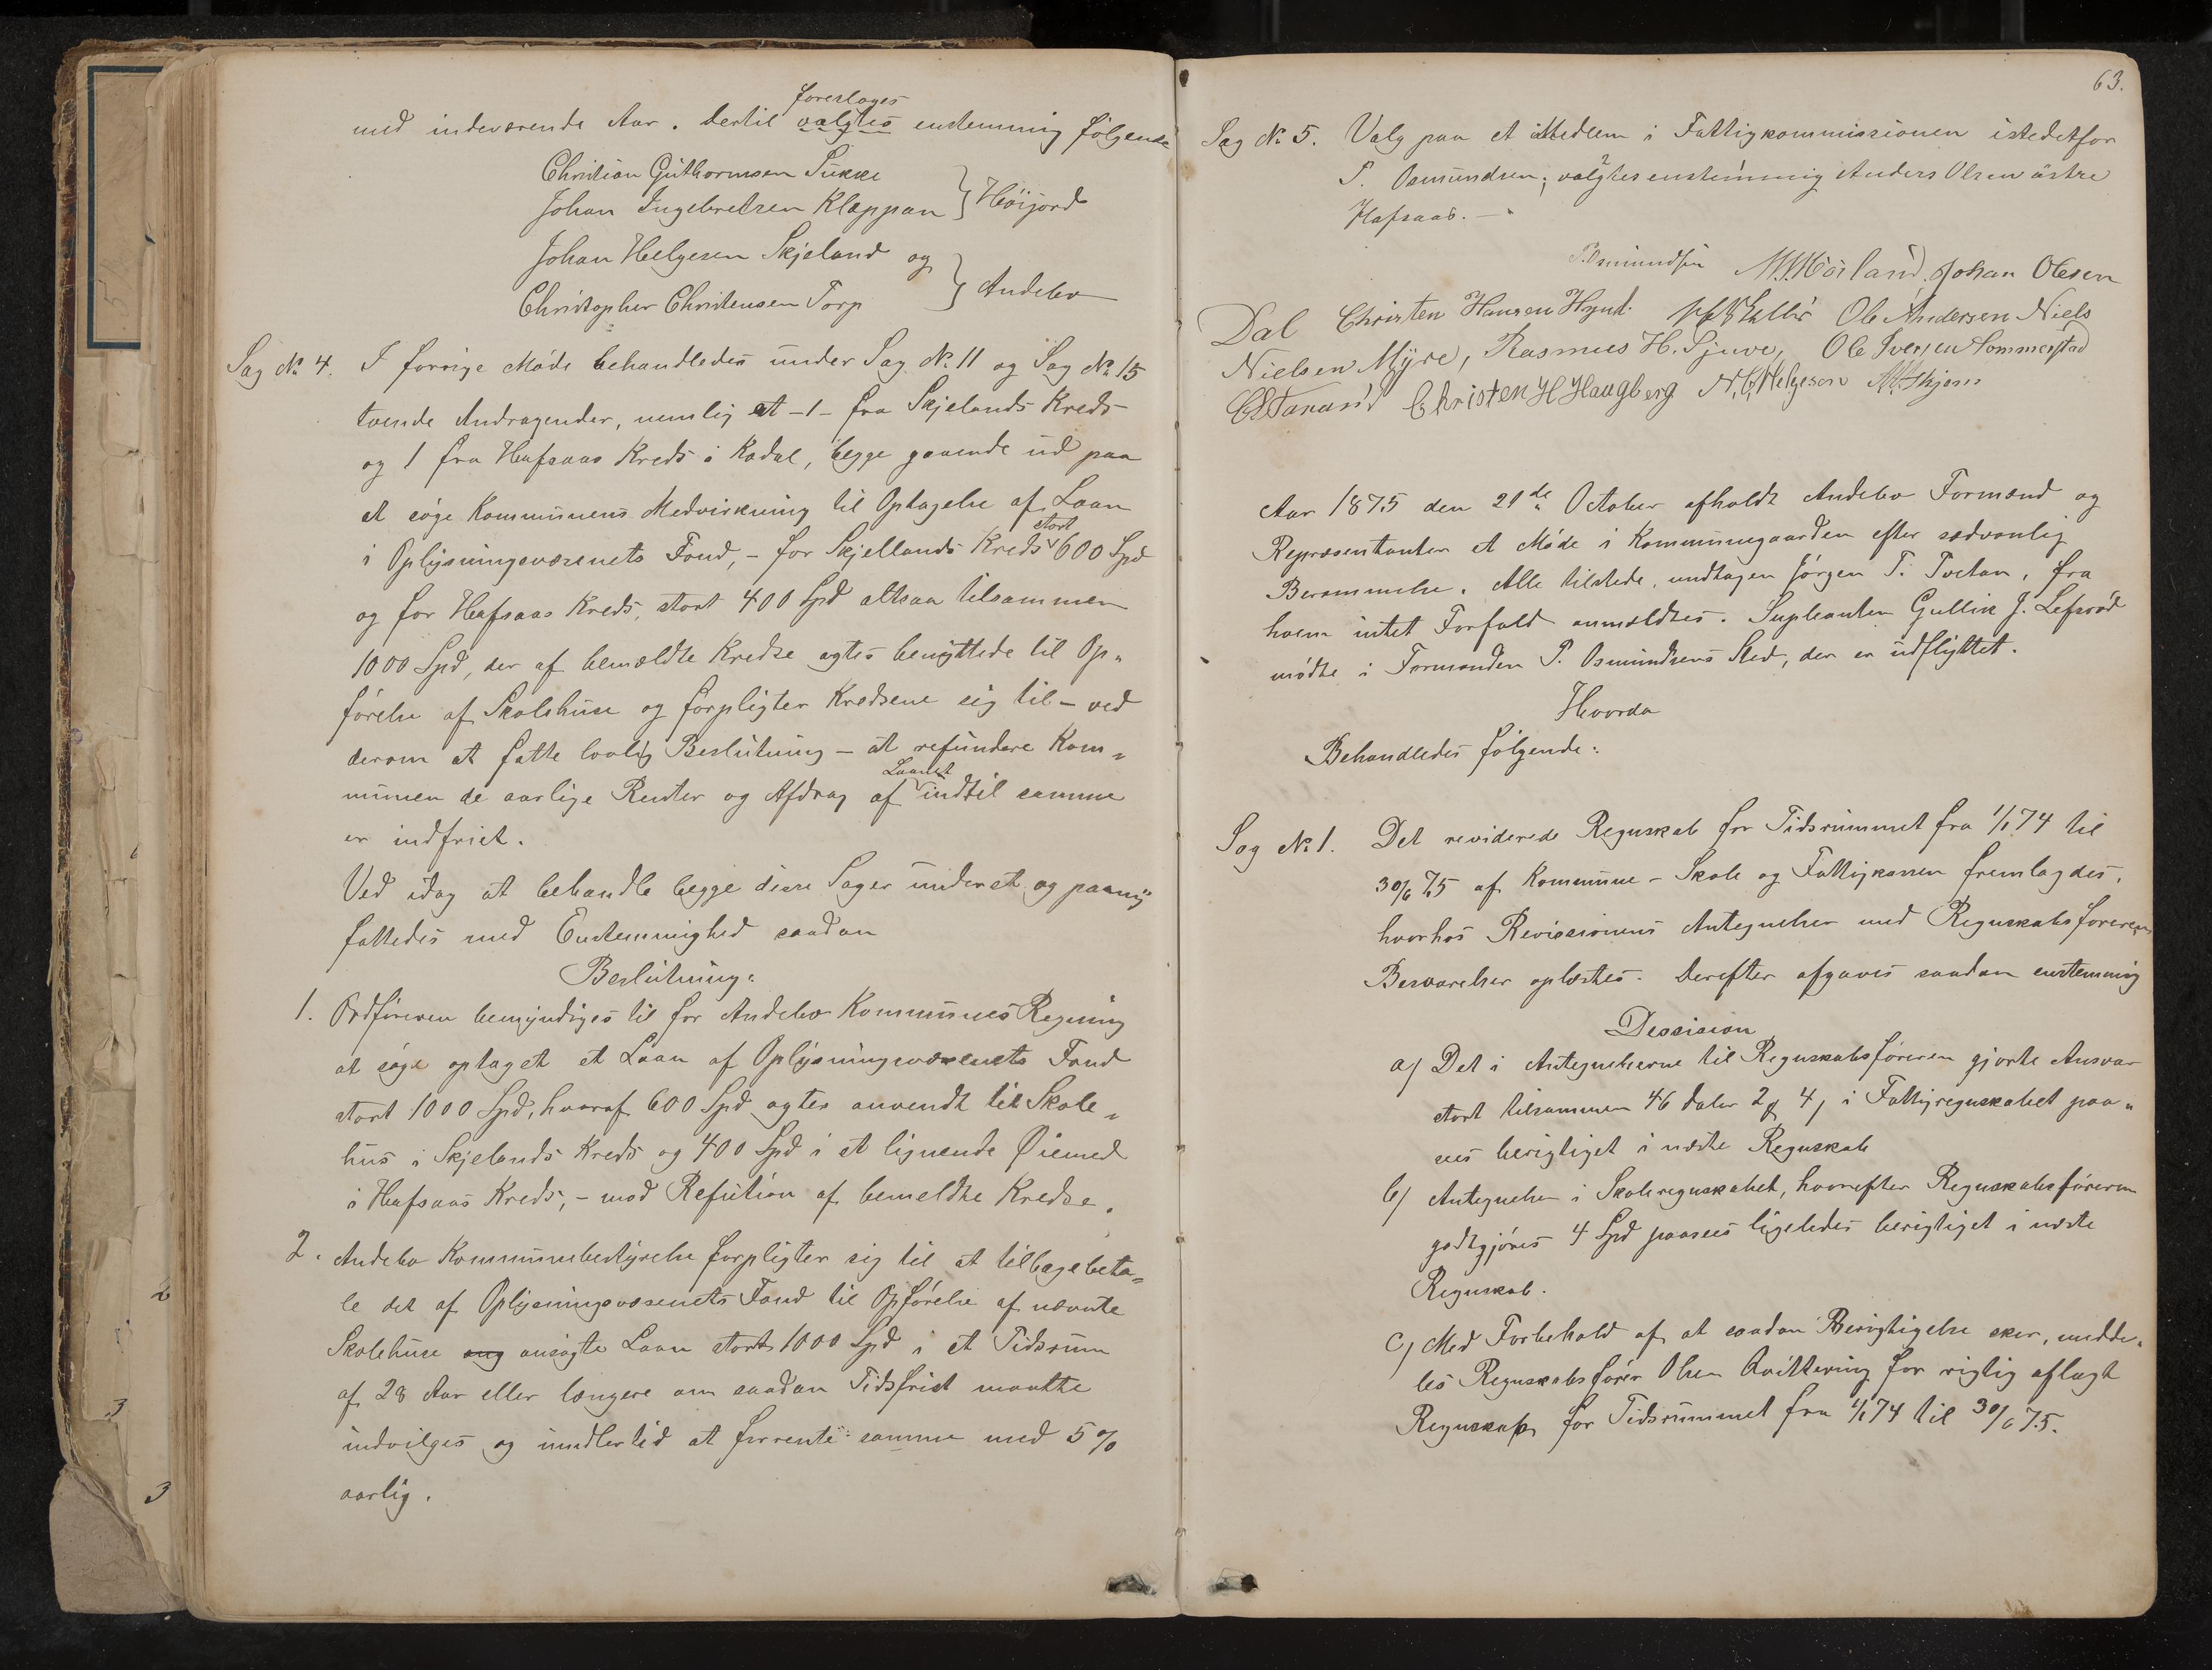 foreslages
med indeværende Aar. Dertil valgtes enstemmig følgende
Christian Guthormsen Sukke
Johan Ingebretsen Kläppan } Höijord
Johan Helgesen Skjeland og
Christopher Christensen Torp } Andebo
Sag No 4. I forrige Møde behandledes under Sag No 11 og Sag No 15
tvende Andragender, nemlig et -1- fra Skjelands Kreds
og 1 fra Hafsaas Kreds i Kodal, begge gaaende ud paa
at søge Kommunens Medvirkning til Optagelse af Laan
i Oplysningsvæsenets Fond, - for Skjellands Kreds stort 600 Spd
og for Hafsaas Kreds, stort 400 Spd altsaa tilsammen
1000 Spd, der af bemældte Kredse agtes benyttede til Op-
førelse af Skolehuse og forpligter Kredsene sig til - ved
derom at fatte lovlig Beslutning - at refundere Kom-
munen de aarlige Renter og Afdrag af Laanet indtil samme
er indfriet.
Ved idag at behandle begge disse Sager under et og paany
fattedes med Enstemmighed saadan
Beslutning:
1. Ordføreren bemyndiges til for Andebo Kommunes Regning
at søge optaget et Laan af Oplysningsvæsenets Fond
stort 1000 Spd, hvoraf 600 Spd agtes anvendt til Skole-
hus i Skjelands Kreds og 400 Spd i et lignende Øiemed
i Hafsaas Kreds, - mod Refution af bemeldte Kredse.
2. Andebo Kommunebestyrelse forpligter sig til at tilbagebeta-
le det af Oplysningsvæsenets Fond til Opførelse af nævnte
Skolehuse ang ansøgte Laan stort 1000 Spd i et Tidsrum
af 28 Aar eller længere om saadan Tidsfrist maatte
indvilges og imidlertid at forrente samme med 5%
aarlig.
63.
Sag No 5. Valg paa et Medlem i Fattigkommissionen istedetfor
P. Osmundsen; valgtes enstemmig Anders Olsen østre
Hafsaas. -
P. Osmundsen M. Mørland, Johan Olesen
Dal Christen Hansen Hynd. Ole Andersen Niels
Nielsen Myre, Rasmus H. Sjuve, Ole Iversen Sommerstad
Christen H Haugberg N. C. Helgeson
Aar 1875 den 21de October afholdt Andebo Formænd og
Repræsentanter et Møde i Kommunegaarden efter sædvanlig
Berammelse. Alle tilstede, undtagen Jørgen T. Tvetan, fra
hvem intet Forfald anmeldtes. Supleanten Gullik J. Lefsrød
mødte i Formanden P. Osmundsens Sted, der er udflyttet.
Hvorda
Behandledes følgende:
Sag No 1. Det reviderede Regnskab for Tidsrummet fra 1/1 74 til
30/6 75 af Kommune- Skole og Fattigkassen fremlagdes,
hvorhos Revissionens Antegnelser med Regnskabsførerens
Besvarelser oplæstes. Derefter afgaves saadan enstemmig
Dessision
a) Det i Antegnelserne til Regnskabsføreren gjorte Ansvar
stort tilsammen 46 daler 2 4 i Fattigregnskabet paa-
sees berigtiget i næste Regnskab
b) Antegnelser i Skoleregnskabet, hvorefter Regnskabsføreren
godtgjøres 4 Spd paasees ligeledes berigtiget i næste
Regnskab.
c) Med Forbehold af at saadan Berigtigelse sker, medde-
les Regnskabsfører Olsen Qvittering for rigtig aflagt
Regnskab for Tidsrummet fra 1/1 74 til 30/6 75.